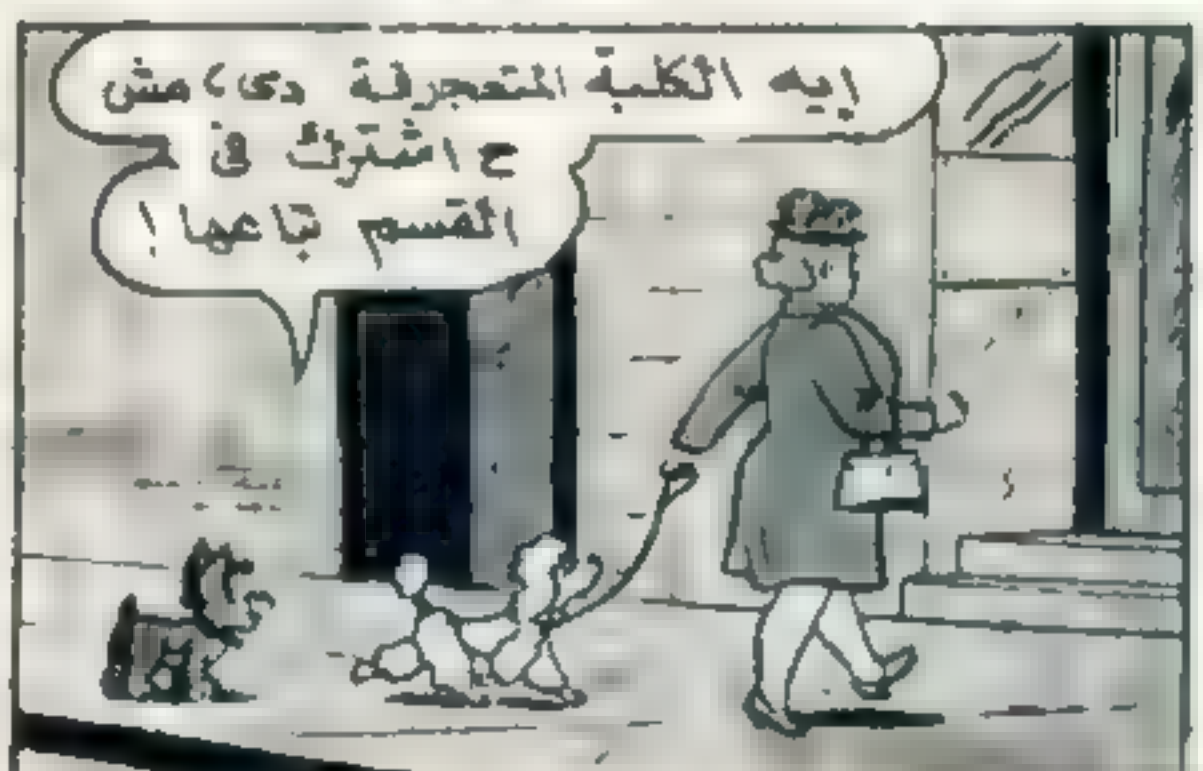 إيه الكلبة المتعجرفة دى، مش
ح اشترك فى
القسم بتاعها !